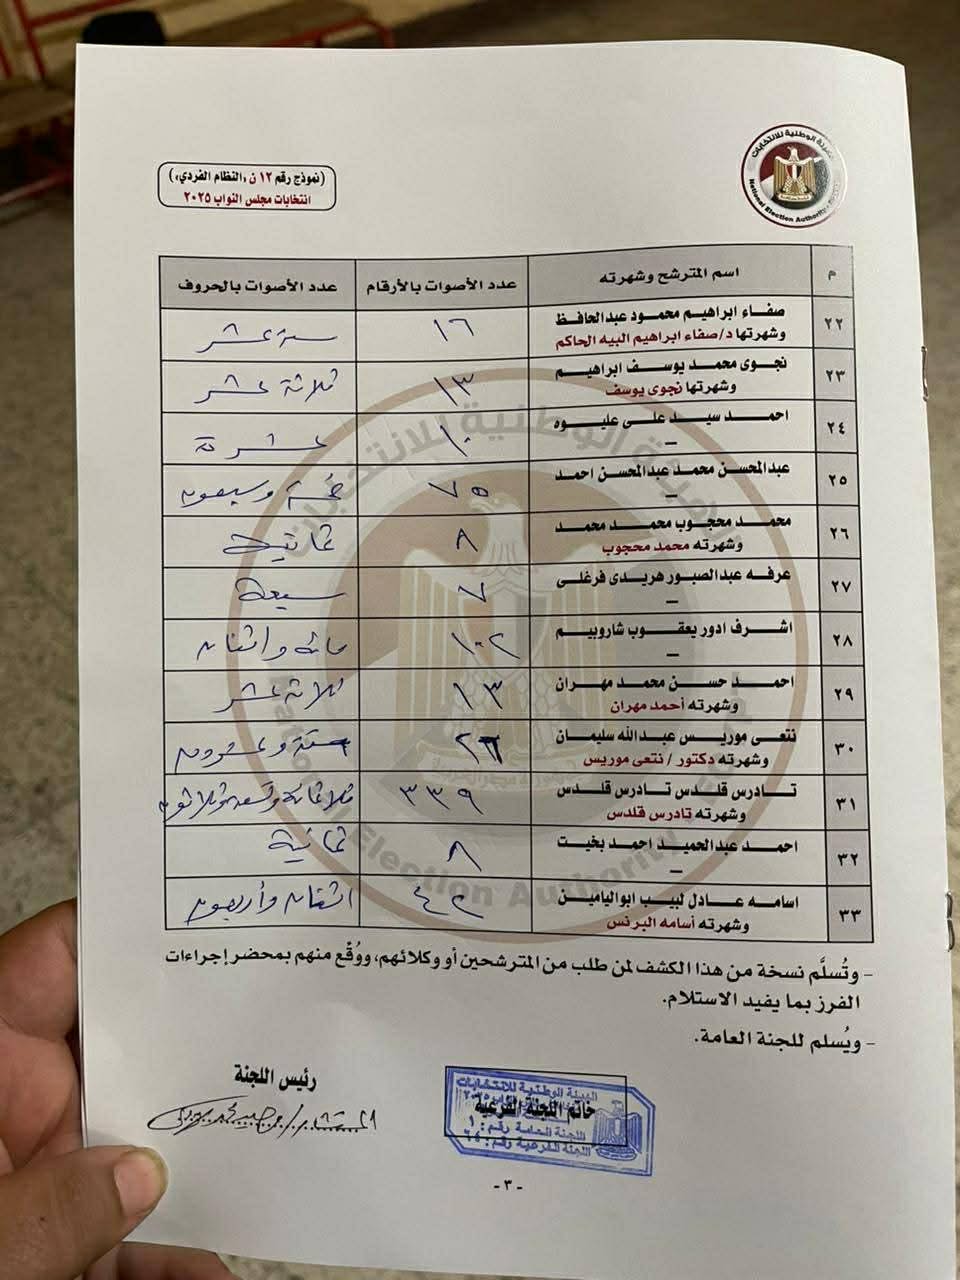 الهيئة الوطنية للانتخابات
National Election Authority
(نموذج رقم ١٢ ن «النظام الفردي»)
انتخابات مجلس النواب ٢٠٢٥
م اسم المترشح وشهرته عدد الأصوات بالأرقام عدد الأصوات بالحروف
٢٢ صفاء ابراهيم محمود عبدالحافظ ١٦ ستة عشر
وشهرتها د/صفاء ابراهيم البيه الحاكم
٢٣ نجوى محمد يوسف ابراهيم ١٣ ثلاثة عشر
وشهرتها نجوى يوسف
٢٤ احمد سيد على عليوه ١٠ عشرة
–
٢٥ عبدالمحسن محمد عبدالمحسن احمد ٧٥ خمسة وسبعون
–
٢٦ محمد محجوب محمد محمد ٨ ثمانية
وشهرته محمد محجوب
٢٧ عرفه عبدالصبور هريدى فرغلى ٧ سبعة
–
٢٨ اشرف ادور يعقوب شاروبيم ١٠٢ مائة واثنان
–
٢٩ احمد حسن محمد مهران ١٣ ثلاثة عشر
وشهرته أحمد مهران
٣٠ نتعى موريس عبدالله سليمان ٢٦ ستة وعشرون
وشهرته دكتور / نتعى موريس
٣١ تادرس قلدس تادرس قلدس ٣٣٩ ثلاثمائة وتسعة وثلاثون
وشهرته تادرس قلدس
٣٢ احمد عبدالحميد احمد بخيت ٨ ثمانية
–
٣٣ اسامه عادل لبيب ابواليامين ٤٢ اثنان وأربعون
وشهرته أسامه البرنس
- وتُسلَّم نسخة من هذا الكشف لمن طلب من المترشحين أو وكلائهم، ووُقِّع منهم بمحضر إجراءات
الفرز بما يفيد الاستلام.
- ويُسلم للجنة العامة.
رئيس اللجنة
المستشار/
خاتم اللجنة الفرعية
الهيئة الوطنية للانتخابات
اللجنة العامة رقم: ١
اللجنة الفرعية رقم:
- ٣ -